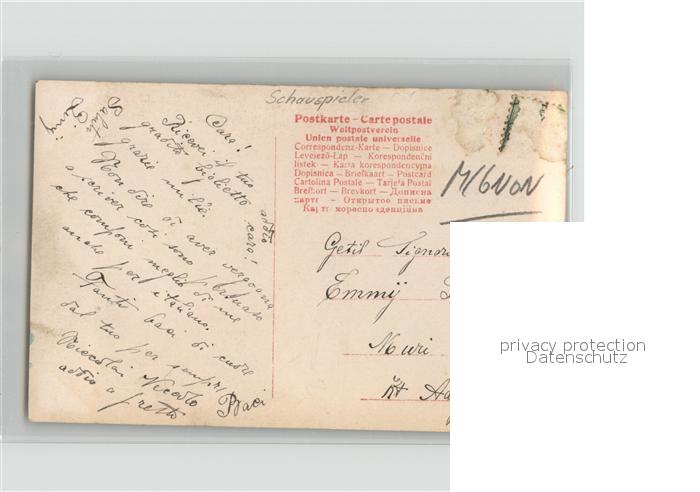 Schauspieler
Postkarte – Carte postale
Weltpostverein
Union postale universelle
Correspondenz-Karte – Dopisnice
Levelező-Lap – Korespondenční
listek – Karta korespondencyjna
Dopisnica – Briefkaart – Postcard
Cartolina Postale – Tarjeta Postal
Brefkort – Brevkort – Дописна
карта – Открытое письмо
Карта кореспонденційна
Mignon
Caro!
Ricevei il tuo
gradito biglietto
grazie mille.
Non dire di aver vergogna
a scriver così sono
che componi meglio di me
anche per italiano.
Tanti baci di cuore
dal tuo per sempre
Niccolo
addio a presto
Baci
addio caro!
Saluti
Emmy
Muri
Kt Aa
privacy protection
Datenschutz